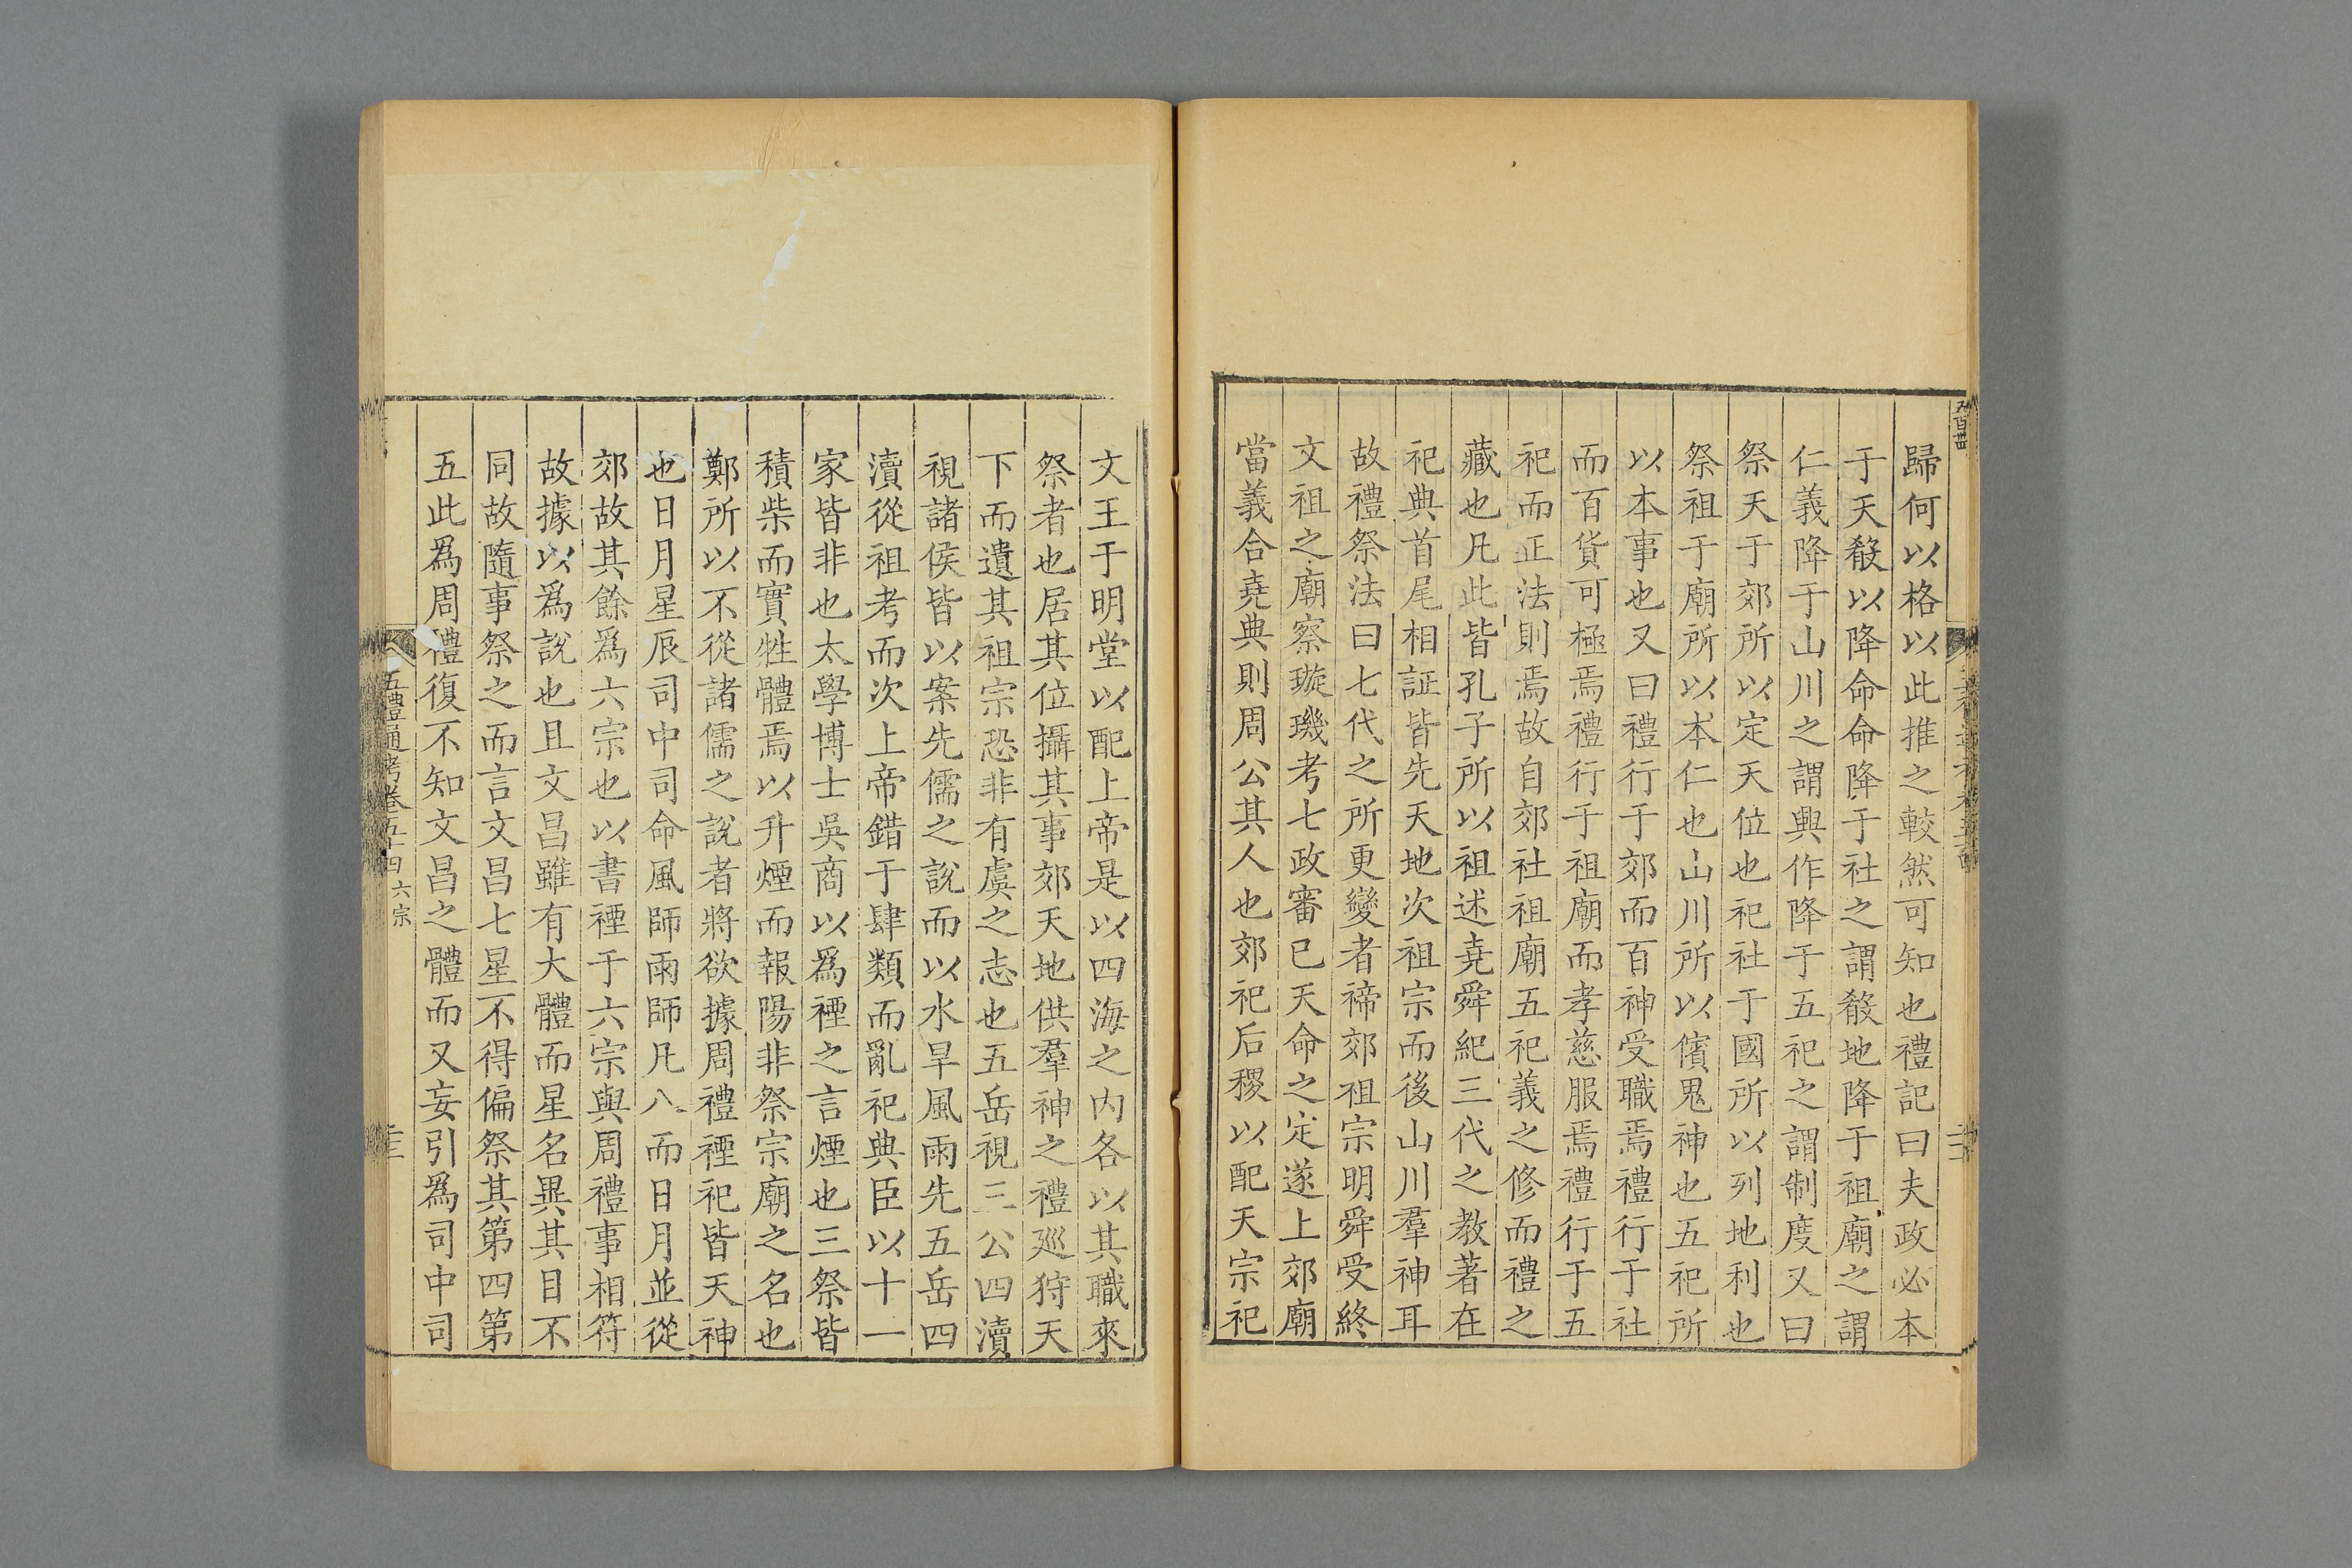 歸何以格以此推之較然可知也禮記曰夫政必本
于天殽以降命命降于社之謂殽地降于祖廟之謂
仁義降于山川之謂興作降于五祀之謂制度又曰
祭天于郊所以定天位也祀社于國所以列地利也
祭祖于廟所以本仁也山川所以儐鬼神也五祀所
以本事也又曰禮行于郊而百神受職焉禮行于社
而百貨可極焉禮行于祖廟而孝慈服焉禮行于五
祀而正法則焉故自郊社祖廟五祀義之修而禮之
藏也凡此皆孔子所以祖述堯舜紀三代之教著在
祀典首尾相証皆先天地次祖宗而後山川羣神耳
故禮祭法曰七代之所更變者禘郊祖宗明舜受終
文祖之廟察璇璣考七政審已天命之定遂上郊廟
當義合堯典則周公其人也郊祀后稷以配天宗祀
文王于明堂以配上帝是以四海之内各以其職來
祭者也居其位攝其事郊天地供羣神之禮巡狩天
下而遺其祖宗恐非有虞之志也五岳視三公四瀆
視諸侯皆以案先儒之說而以水旱風雨先五岳四
瀆從祖考而次上帝錯于肆類而亂祀典臣以十一
家皆非也太學博士吳商以爲禋之言煙也三祭皆
積柴而實牲體焉以升煙而報陽非祭宗廟之名也
鄭所以不從諸儒之說者將欲據周禮禋祀皆天神
也日月星辰司中司命風師雨師凡八而日月並從
郊故其餘爲六宗也以書禋于六宗與周禮事相符
故據以爲說也且文昌雖有大體而星名異其目不
同故隨事祭之而言文昌七星不得偏祭其第四第
五此爲周禮復不知文昌之體而又妄引爲司中司
五禮通考卷五十四 六宗